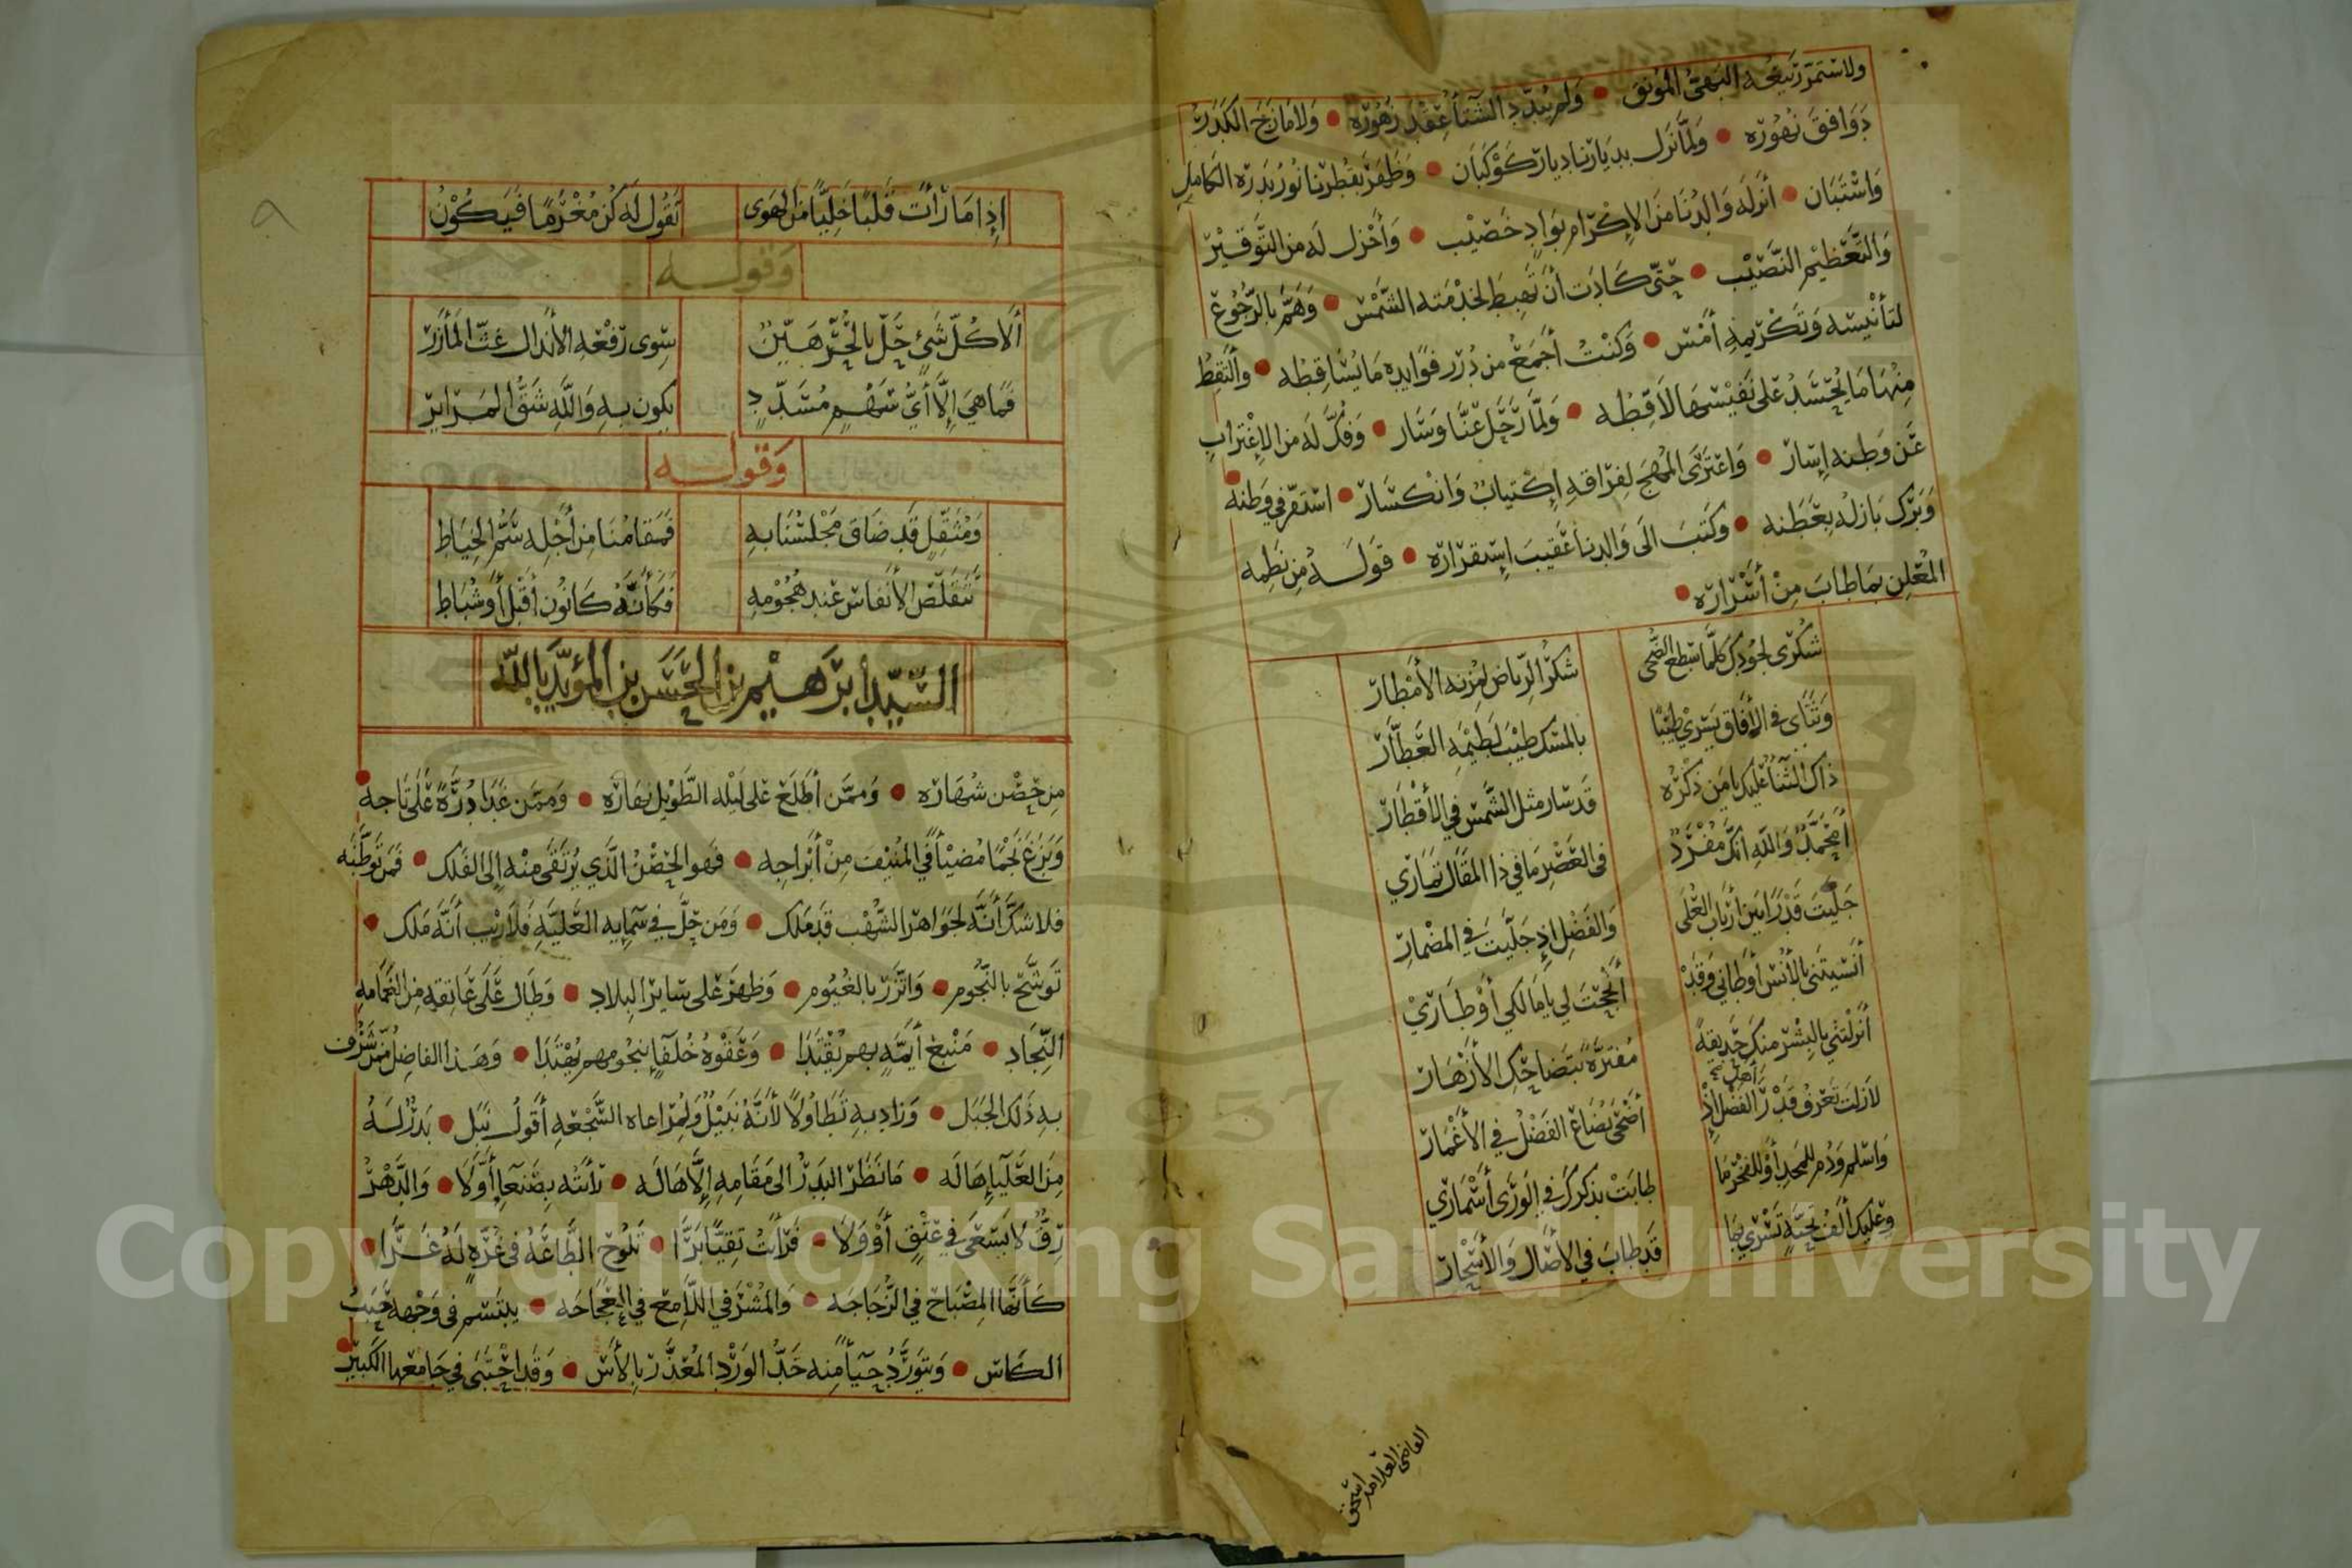 ولاستمر ربيعه البهي المونق • ولم يبدد الشتاء عقد زهوره • ولا مازج الكدر
دوافق نهوره • ولما نزل بديارنا ديار كوكبان • وظهر بقطرنا نور بدره الكامل
واستبان • أنزله والدنا من الإكرام بواد خصيب • وأجزل له من التوقير
والتعظيم النصيب • حتى كادت أن تهبط لخدمته الشمس • وهم بالرجوع
لتأنيسه وتكريمه أمس • وكنت أجمع من درر فوايده ما يساقطه • وألتقط
منها ما يحسد على نفيسها لاقطه • ولما رحل عنا وسار • وفك له من الاغتراب
عن وطنه إسار • واعترى المهج لفراقه إكتياب وانكسار • استقر في وطنه
وبرك بازله بعطنه • وكتب الى والدنا عقيب إستقراره • قوله من نظمه
المعلن بما طاب من أسراره •
شكرى لجودك كلما سطع الضحى شكر الرياض لمزنه الأمطار
وثناى في الآفاق يسري طيبا بالمسك طيب لطيمه العطار
ذاك الثناء عليك يا من ذكره قد سار مثل الشمس في الأقطار
أمحمد والله انك مفرد في العصر ما في ذا المقال تماري
جليت قدرا بين أرباب العلى والفضل إذ جليت في المضمار
أنسيتني بالأنس أوطاني وقد أنجحت لي يا مالكي أوطاري
أنزلتني بالبشر منك حديقة مفترة بتضاحك الأزهار
لازلت تعرف قدر أهل الفضل إذ أضحى بضاع الفضل في الأغمار
واسلم ودم للمجد أو للفخر ما طابت بذكرك في الورى أسماري
وعليك ألف تحية تسري بها قد طاب في الآصال والأسحار
القاضي العلامه اسحق
إذا ما رأت قلبا خليا من الهوى تقول له كن مغرما فيكون
وقوله
ألا كل شيء حل بالحر هين سوى رفعه الأنذال غث المآزر
فما هي إلا أي سهم مسدد يكون به والله شق المراير
وقوله
ومثقل قد ضاق مجلسنا به فمقامنا من أجله سم الخياط
تتقلص الأنفاس عند هجومه فكأنه كانون أقبل أو شباط
السيد إبرهيم بن الحسن بن المؤيد بالله
من حصن شهاره • وممن أطلع على ليله الطويل نهاره • وممن غدا درة على تاجه
وبزغ نجما مضيئا في المنيف من أبراجه • فهو الحصن الذي يرتقى منه إلى الفلك • فمن توطنه
فلا شك أنه لجواهر الشهب قد ملك • ومن حل في سمايه العلية فلا ريب أنه ملك •
توشح بالنجوم • واتزر بالغيوم • وظهر على ساير البلاد • وطال على عاتقه من الغمامه
النجاد • منبع أيمة بهم يقتدا • وعفوه خلفآء بنجومهم يهتدا • وهذا الفاضل ممن شرف
به ذلك الجبل • وزاد به تطاولا لأنه نبيل ولمراعاه السجعه أقول نبل • بدر له
من العليآء هاله • ما نظر البدر الى مقامه إلا هاله • رأيته بصنعآء أولا • والدهر
رق لا يسعى في عتق أو ولا • فرأيت تقيا برا • تلوح الطاعة في غرة له غرا •
كأنها المصباح في الزجاجه • والمشرفي اللامع في العجاجه • يبتسم في وجهه حبب
الكاس • ويتورد حيآء منه خد الورد المعذر بالآس • وقد احتبى في جامعها الكبير